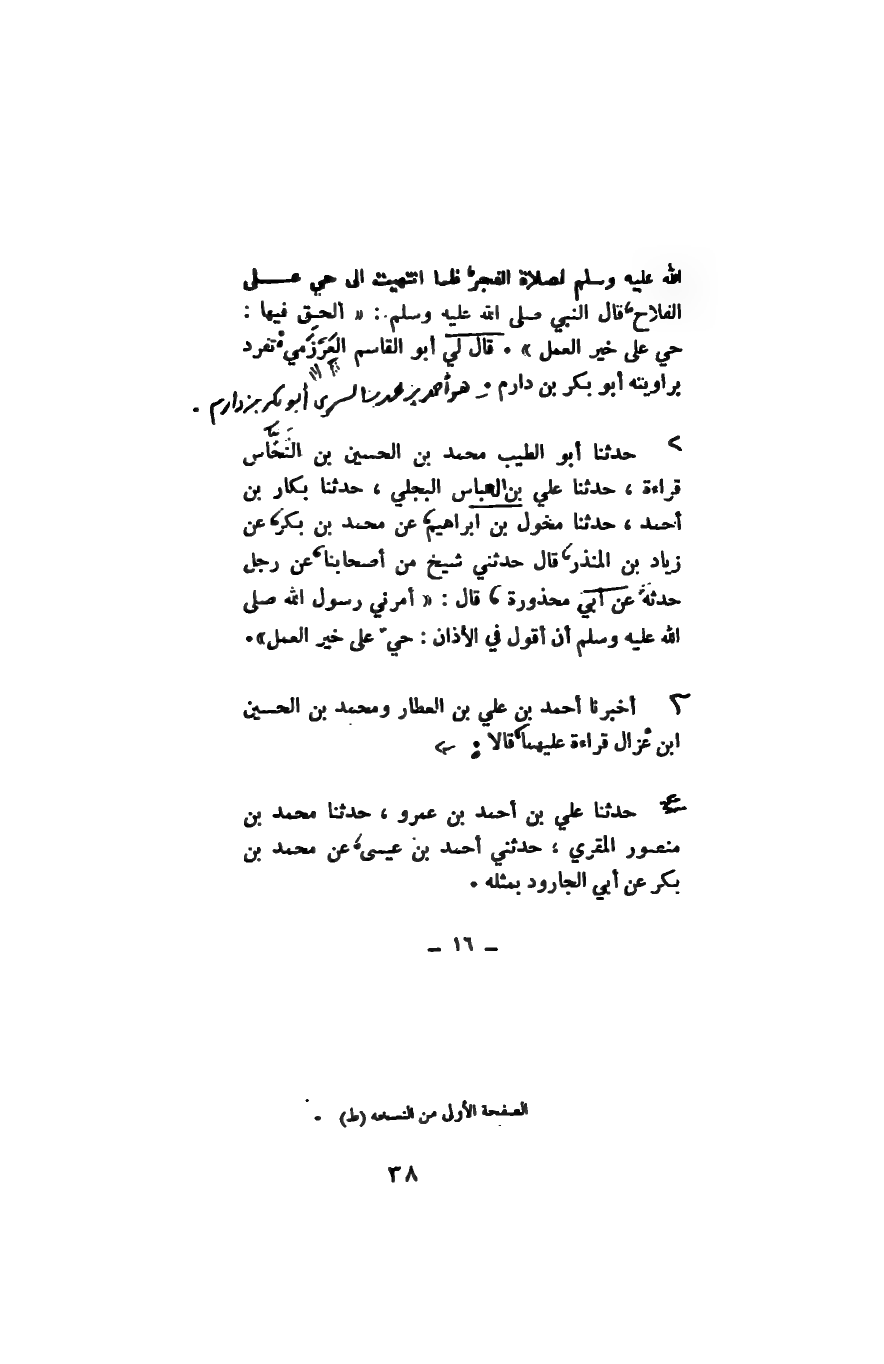 الله عليه وسلم لصلاة الفجر، فلما انتهيت الى حي عــــلى
الفلاح، قال النبي صلى الله عليه وسلم : « الحق فيها :
حي على خير العمل » . قال لي أبو القاسم العَرْزَمي، تفرد
براويته أبو بكر بن دارم . هو أحمد بن محمد بن السري أبو بكر بن دارم .
< حدثنا أبو الطيب محمد بن الحسين بن النخاس
قراءة ، حدثنا علي بن العباس البجلي ، حدثنا بكار بن
أحمد ، حدثنا مخول بن ابراهيم، عن محمد بن بكر، عن
زياد بن المنذر، قال حدثني شيخ من أصحابنا، عن رجل
حدثه، عن أبي محذورة ، قال : « أمرني رسول الله صلى
الله عليه وسلم أن أقول في الأذان : حيّ على خير العمل».
٣ أخبرنا أحمد بن علي بن العطار ومحمد بن الحسين
ابن غزال قراءة عليهما، قالا :
٤ حدثنا علي بن أحمد بن عمرو ، حدثنا محمد بن
منصور المقري ، حدثني أحمد بن عيسى، عن محمد بن
بكر عن أبي الجارود بمثله .
ـ ١٦ ـ
الصفحة الأولى من النسخه (ط) .
٣٨